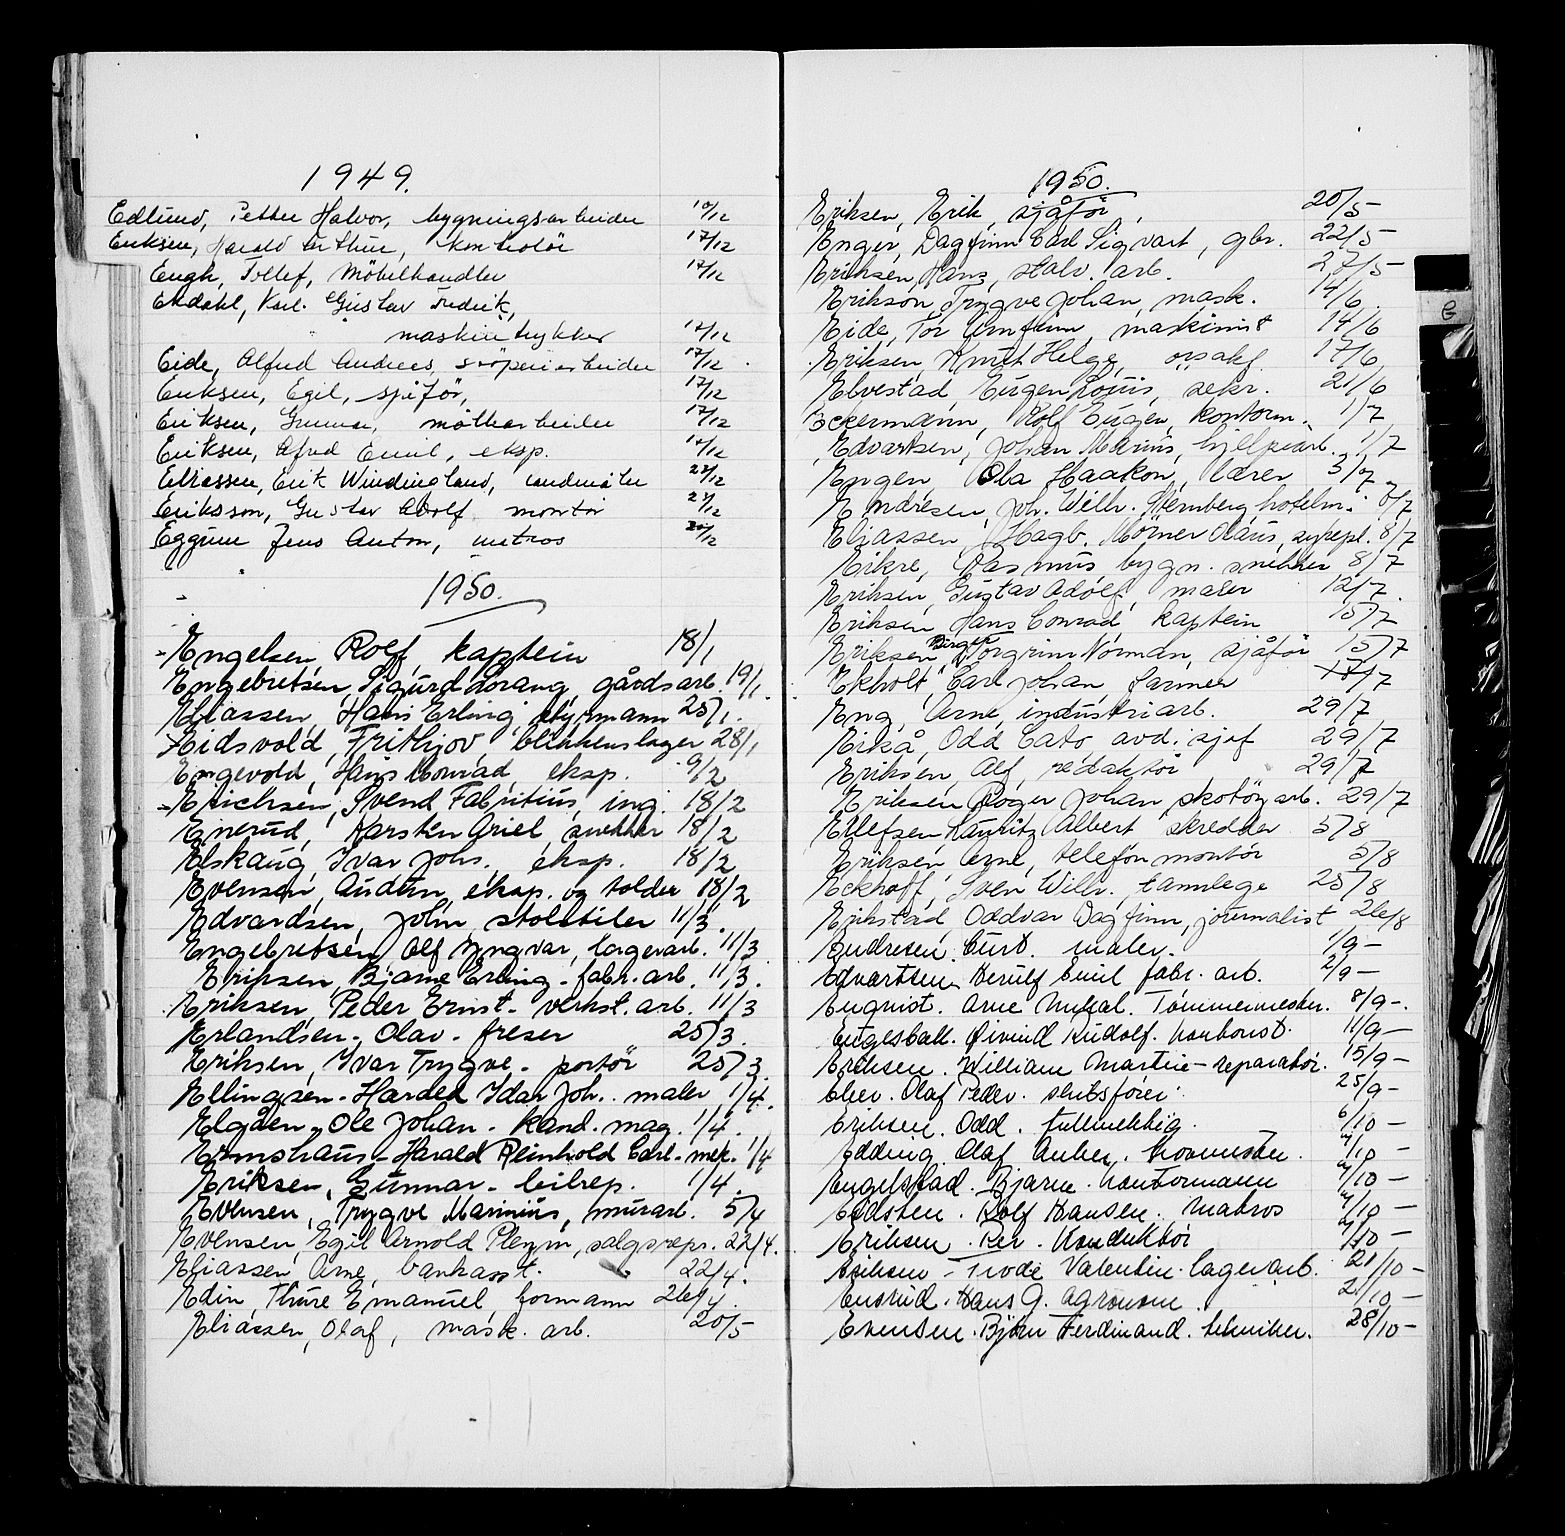 1949.
Edlund, Petter Halvor, bygningsarbeider 10/12
Eriksen, Harald Arthur, kontrolör 17/12
Engh, Tollef, Möbelhandler 17/12
Ekdahl, Karl Gustav Fredrik,
maskintrykker 17/12
Eide, Alfred Andreas, støperiarbeider 17/12
Eriksen, Egil, sjåför, 17/12
Eriksen, Gunnar, måltarbeider 17/12
Eriksen, Alfred Emil, eksp. 17/12
Eliassen, Erik Windingland, landmåler 22/12
Eriksson, Gustav Adolf montör 21/12
Eggum Jens Anton, matros 30/12
1950.
Engelsen, Rolf, kaptein 18/1
Engebretsen, Sigurd Lorang, gårdsarb. 19/1.
Eliassen, Hans Erling, styrmann 25/1.
Eidsvold, Frithjov, blikkenslager 28/1
Engevold, Hans Konrad, eksp. 9/2
Erichsen, Svend Fabritius, ing. 18/2
Enerud, Karsten Ariel, snekker 18/2
Elskaug, Ivar Johs. eksp. 18/2
Evensen, Audun, eksp. og tolder 18/2
Edvardsen, John, stolstiler 11/3.
Engebretsen, Alf Yngvar, lagerarb. 11/3
Eriksen, Bjarne Erling - fabr. arb. 11/3.
Eriksen, Peder Ernst - verkst. arb. 11/3
Erlandsen, Olav - freser 25/3.
Eriksen, Ivar Trygve - portör 25/3.
Ellingsen - Hardel Idar Joh. maler 1/4.
Elgåen, Ole Johan - kand. mag. 1/4.
Ermshaus - Harald Reinhold Carl - mek. 1/4
Eriksen, Gunnar - bilrep. 1/4.
Evensen, Trygve Marinius, murarb. 5/4
Evensen, Egil Arnold Pleym, salgsrepr. 22/4.
Eliassen, Arne, bankasst. 22/4.
Edin, Thure Emanuel, formann 26/4.
Eliassen, Olaf, mask. arb. 20/5
1950.
Eriksen, Erik, sjåför, 20/5-
Enger, Dagfinn Carl Sigvart, gbr. 22/5-
Eriksen, Hans, stalv. arb. 27/5-
Erikson, Trygve Johan, mask. 14/6.
Eide, Tor Arnfinn, maskinist 14/6
Eriksen, Knut Helge, 17/6
Elvestad, Eugen Louis, sekr. 21/6
Eckermann, Rolf Eugen, kontorm. 1/7
Edvartsen, Johan Marius, hjelpearb. 1/7
Engen, Ola Haakon, lærer 5/7
Endresen, Joh. Wilh. Sternberg hotelm. 8/7
Eliassen, Hagb. Mørner Olaus, sykepl. 8/7
Eikre, Rasmus bygn. snekker 8/7
Eriksen, Gustav Adolf, maler 12/7.
Eriksen, Hans Conrad, kaptein 15/7
Eriksen, Birger Torgrim Norman, sjåför 15/7
Ekholt, Carl Johan, farmer 17/7
Eng, Arne, industriarb. 29/7
Eikå, Odd Cato avd. sjef 29/7
Eriksen, Alf, redaktör 29/7
Eriksen, Roger Johan, skotöyarb. 29/7
Ellefsen, Lauritz Albert skredder 5/8
Eriksen, Arne, telefonmontör 5/8
Eckhoff, Sven Wilh. tannlege 25/8
Erikstad, Oddvar Dagfinn, journalist 26/8
Endresen, Curt. maler. 1/9-
Edvartsen, Herulf Emil fabr. arb. 2/9-
Enqvist. Arne Mikal. Tömmermester. 8/9-.
Engesbakk. Øivind Rudolf. kontorist. 11/9-
Eriksen. William Martin - reparatör. 15/9-
Elier. Olaf Peder. skutsförer. 25/9-
Eriksen. Odd. fullmektig. 6/10-
Edding Olaf Anker. hovmester. 7/10-
Engelstad. Bjarne. Kontormann 7/10-
Eidsten. Rolf Hansen. Matros 7/10-
Eriksen. Per. Konduktör 7/10-
Eriksen - Frode Valentin. lagerarb. 21/10-
Ensrud. Hans G. agronom. 21/10-
Evensen. Björn Ferdinand. tekniker. 28/10-
E